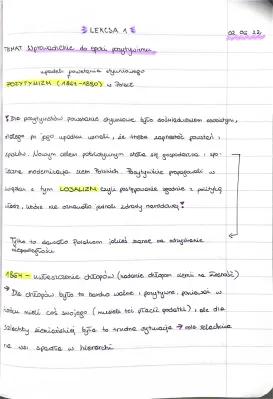 LEKCJA 1
02.06.22
TEMAT: Wprowadzenie do epoki pozytywizmu
upadek powstania styczniowego
POZYTYWIZM (1864-1890) w Polsce
Dla pozytywistów powstanie styczniowe było doświadczeniem osobistym,
dlatego po jego upadku uznali, że trzeba zaprzestać powstań i
spisków. Nowym celem patriotycznym stała się gospodarcza i spo-
łeczna modernizacja ziem Polskich. Pozytywiści proponowali w
związku z tym LOJALIZM czyli postępowanie zgodnie z polityką
władz, które nie oznaczało jednak zdrady narodowej!
Tylko to dawało Polakom jakieś szanse na odzyskanie
niepodległości
1864 - uwłaszczenie chłopów (nadanie chłopom ziemi na własność)
Dla chłopów było to bardzo ważne i pozytywne, ponieważ w
końcu mieli coś swojego (musieli też płacić podatki), ale dla
szlachty ziemiańskiej była to trudna sytuacja → rola szlachcica
na wsi spadła w hierarchii